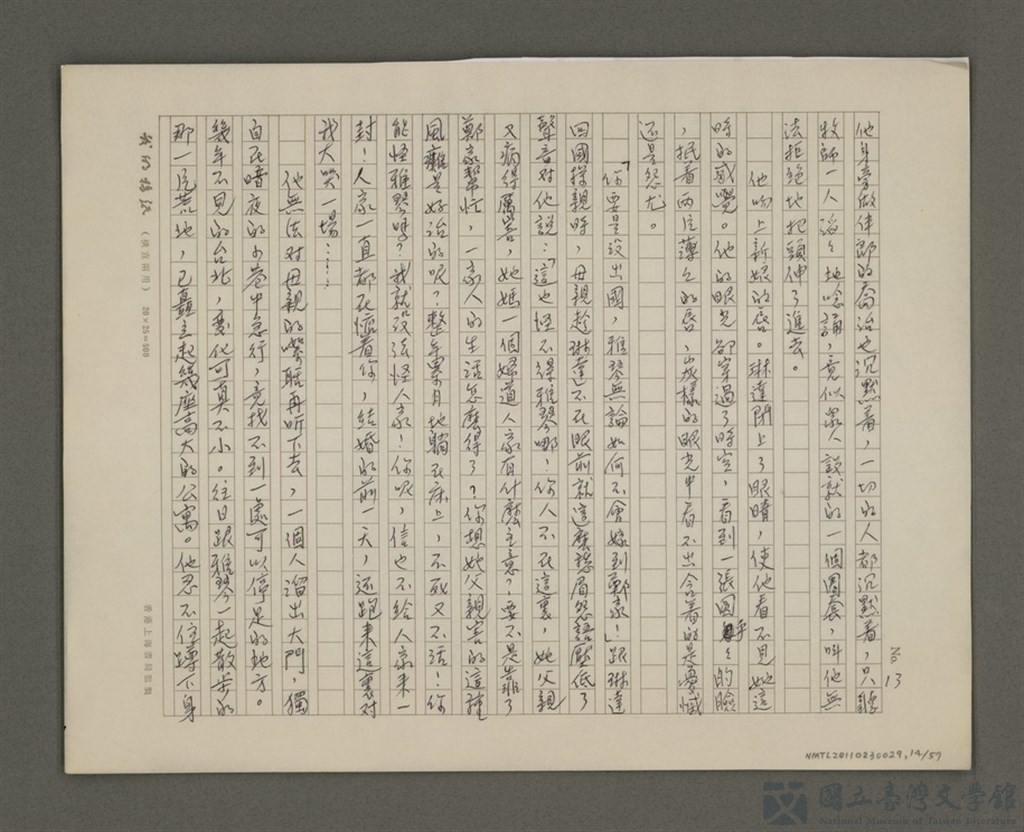 No. 13
他身旁做伴郎的喬治也沉默着，一切的人都沉默着，只聽
牧師一人滔滔地唸誦，竟似眾人設就的一個圈套，叫他無
法拒絕地把頭伸了進去。
他吻上新娘的唇。琳達閉上了眼睛，使他看不見她這
時的感覺。他的眼光卻穿過了時空，看到一張圓乎乎的臉
，抿着兩片薄薄的唇，炭樣的眼光中看不出含着的是憂慽
還是怨尤。
「你要是沒出國，雅琴無論如何不會嫁到鄭家！」跟琳達
回國探親時，母親趁琳達不在眼前就這麼愁眉怨語壓低了
聲音對他說：「這也怪不得雅琴哪！你人不在這裏，她父親
又病得厲害，她媽一個婦道人家有什麼主意？要不是靠了
鄭家幫忙，一家人的生活怎麼得了？你想她父親害的這種
風癱是好治的呢？整年累月地躺在床上，不死又不活！你
能怪雅琴嗎？我就沒法怪人家！你呢，信也不給人家來一
封！人家一直都在懷着你，結婚的前一天，還跑來這裏对
我大哭一場……
他無法对母親的絮聒再听下去，一個人溜出大門，獨
自在暗夜的小巷中急行，竟找不到一處可以停足的地方。
幾年不見的台北，變化可真不小。往日跟雅琴一起散步的
那一片荒地，已矗立起幾座高大的公寓。他忍不住蹲下身
（橫直兩用） 20×25=500
香港上海書局監製
NMTL20110230029, 14/57
國立臺灣文學館
National Museum of Taiwan Literature